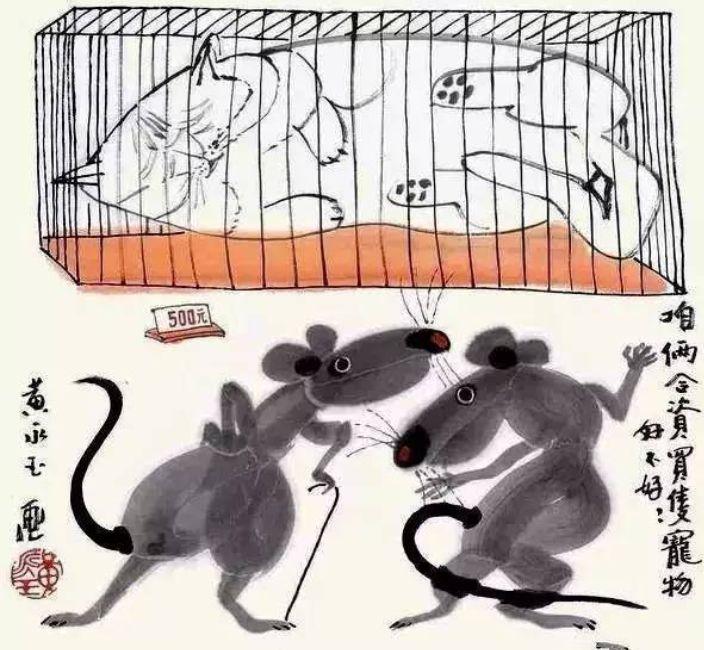 500元
咱倆合資買隻寵物
好不好？
黄永玉畫